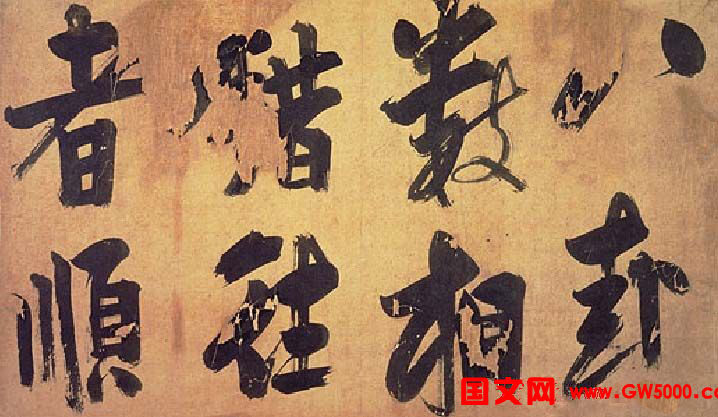 八卦
數相
錯往
者順
国文网 www.GW5000.co